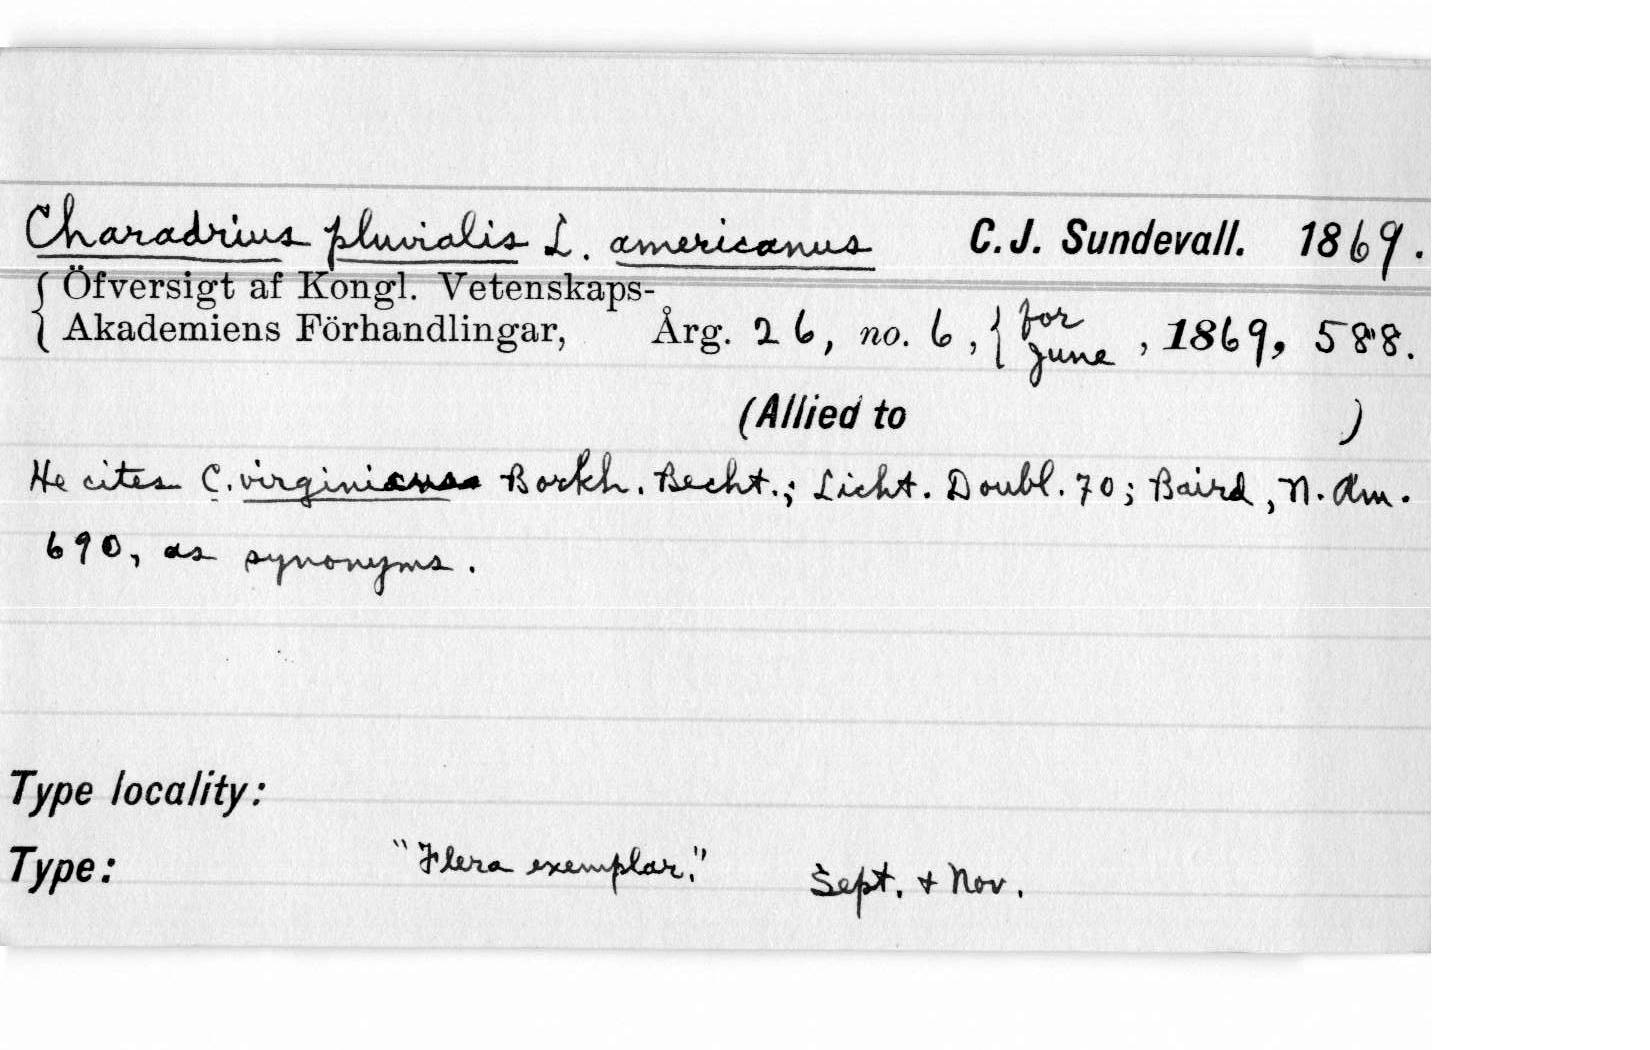 Charadrius pluvialis L. americanus C. J. Sundevall. 1869.
Öfversigt af Kongl. Vetenskaps-
Akademiens Förhandlingar, Årg. 26, no. 6, { for June , 1869, 588.
(Allied to )
He cites C. virginianus Borkh. Becht.; Licht. Doubl. 70; Baird, N. Am.
690, as synonyms.
Type locality:
Type: "Flera exemplar." Sept. + Nov.